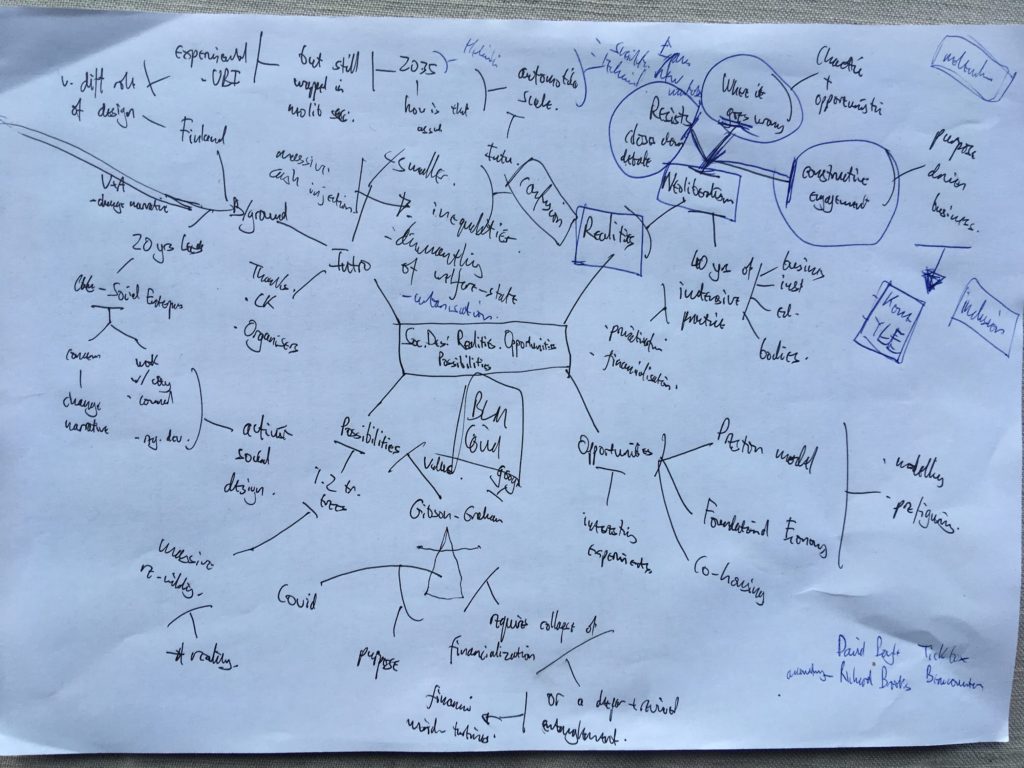 experimental
- UBI
v. diff role
of design
Finland
but still
wrapped in
neolib soc.
2035
how is that
Helsinki
automotive
scale.
V&A
- change narrative
B/ground
20 yrs
Social Enterprise
concern
change
narrative
work
w/
council
- reg. dev.
activist
social
design.
Intro
Thanks.
• CK
• Organisers
massive
cash injection
smaller.
- inequalities
- dismantling
of welfare-state
- urbanisation.
Intro.
confusion
Realities
Neoliberalism
Resists
closes down
debate
Where it
goes wrong
Chaotic
+
opportunistic
constructive
engagement
purpose
driven
business.
YLEE
inclusion
40 yrs of
intensive
practice
business
inst
ed.
bodies.
• privatisation
- financialisation.
Soc. Des: Realities. Opportunities
Possibilities
BLM
Covid
Possibilities
1-2 tr.
trees
massive
re-wilding.
A reality.
Value
Gibson-Graham
Covid
purpose
requires collapse of
financialization
or a deeper
entanglement.
wind turbines.
Opportunities
interesting
experiments
Preston model
Foundational Economy
Co-housing
• modelling
- prefiguring.
David
accountancy Richard Brooks